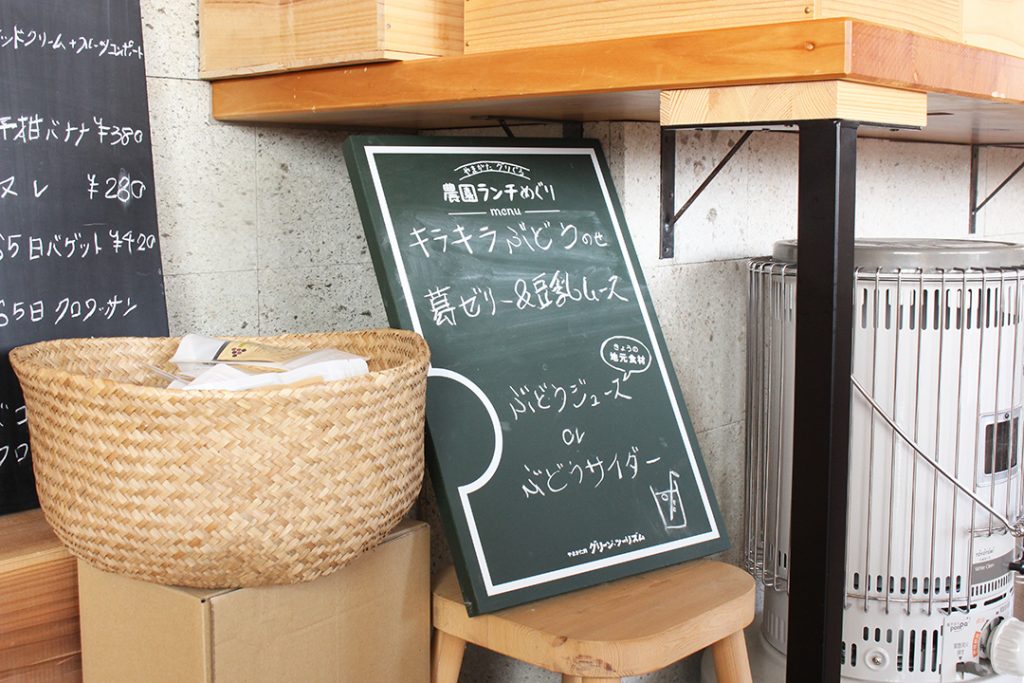 ッドクリーム+フルーツコンポート
干柑バナナ ¥380
ヌレ ¥230
65日バゲット ¥420
65日クロワッサン
やまがた クリぐる
農園ランチめぐり
menu
キラキラぶどうのせ
葛ゼリー&豆乳ムース
きょうの
地元食材
ぶどうジュース
or
ぶどうサイダー
グリーン・ツーリズム